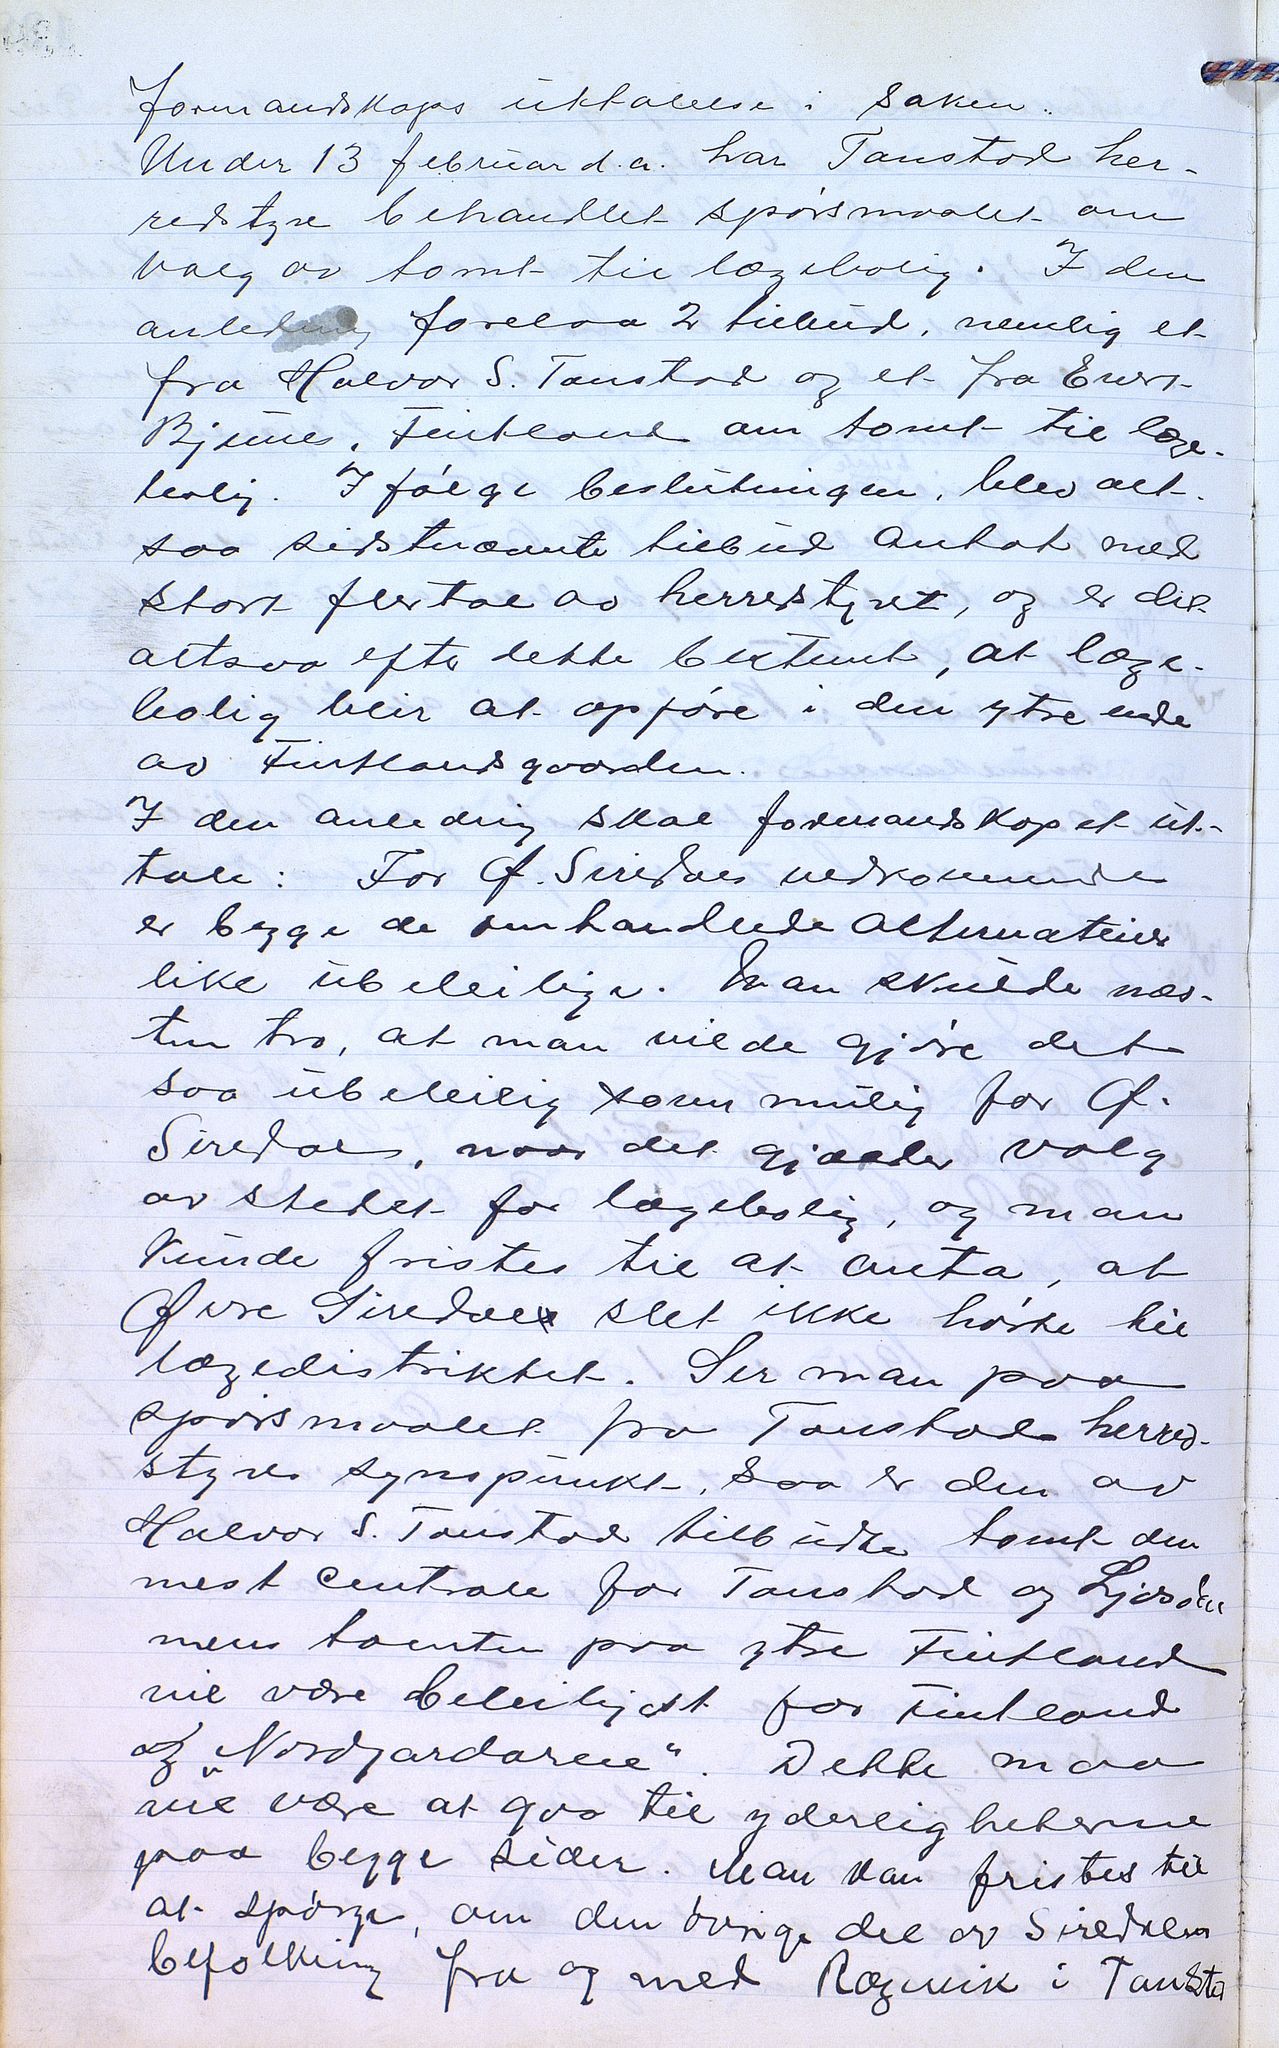 formandskaps uttalelse i saken.
Under 13 februar d.a. har Tonstad her-
redstyre behandlet spørsmaalet om
valg av tomt til lægebolig. I den
anledning forelaa 2 tilbud, nemlig et
fra Halvor S. Tonstad og et fra Enert
Bjunes, Fintland om tomt til læge-
bolig. Ifølge beslutningen, blev alt-
saa sidstnævnte tilbud antat med
stort flertal av herredstyret, og er det
altsaa efter dette bestemt, at læge-
bolig blir at opføre i den ytre ende
av Fintlandsgaarden.
I den anledning skal formandskapet ut-
tale: For Ø. Siredals vedkommende
er begge de omhandlede alternativer
like ubeleilige. Man skulde næs-
ten tro, at man vilde gjøre det
saa ubeleilig som mulig for Ø.
Siredal, naar det gjælder valg
av stedet for lægebolig, og man
kunde fristes til at anta, at
Øvre Siredal slet ikke hørte til
lægedistriktet. Ser man paa
spørsmaalet fra Tonstad herred-
styres synspunkt, saa er den av
Halvor S. Tonstad tilbudte tomt den
mest centrale for Tonstad og
mens tomten paa ytre Fintland
vil være beleiligst for Fintland
og "Nordgardarne". Dette maa
vel være at gaa til yderligheterne
paa begge sider. Man kan fristes til
at spørge, om den øvrige del av Siredalens
befolkning fra og med Rægevik i Tonstad